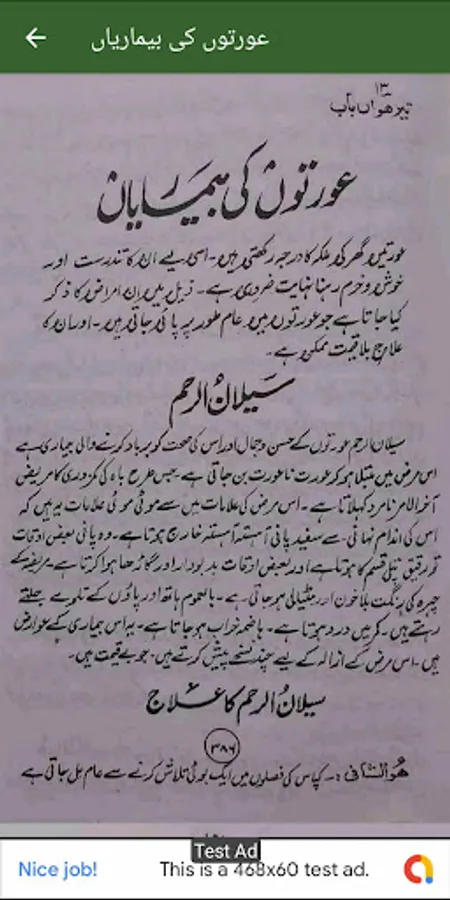 عورتوں کی بیماریاں
۱۳
تیرھواں باب
عورتوں کی بیماریاں
عورتیں گھر کی ملکہ کا درجہ رکھتی ہیں۔ اسی لیے ان کا تندرست اور
خوش و خرم رہنا نہایت ضروری ہے۔ ذیل میں ان امراض کا ذکر
کیا جاتا ہے جو عورتوں میں عام طور پر پائی جاتی ہیں۔ اور ان کا
علاج بلا قیمت ممکن ہے۔
سیلان الرحم
سیلان الرحم عورتوں کے حسن و جمال اور اس کی صحت کو برباد کرنے والی بیماری ہے
اس مرض میں مبتلا ہو کر عورت ناعورت بن جاتی ہے۔ جس طرح باہ کی کمزوری کا مریض
آخر الامر نامرد کہلاتا ہے۔ اس مرض کی علامات میں سے موٹی موٹی علامات یہ ہیں کہ
اس کی اندام نہانی سے سفید پانی آہستہ آہستہ خارج ہوتا ہے۔ وہ پانی بعض اوقات
تو رقیق پتلی قسم کا ہوتا ہے اور بعض اوقات بدبودار اور گاڑھا ہوا کرتا ہے۔ مریضہ کے
چہرہ کی رنگت بلا خون اور مٹیالی ہو جاتی ہے۔ بالعموم ہاتھ اور پاؤں کے تلوے جلتے
رہتے ہیں۔ کمر میں درد ہوتا ہے۔ ہاضمہ خراب ہو جاتا ہے۔ یہ اس بیماری کے عوارض
ہیں۔ اس مرض کے ازالہ کے لیے چند نسخے پیش کرتے ہیں۔ جو بے قیمت ہیں۔
سیلان الرحم کا علاج
۳۸۶
ھوالشافی:۔ کپاس کی فصلوں میں ایک بوٹی تلاش کرنے سے عام مل جاتی ہے
Test Ad
Nice job! This is a 468x60 test ad.